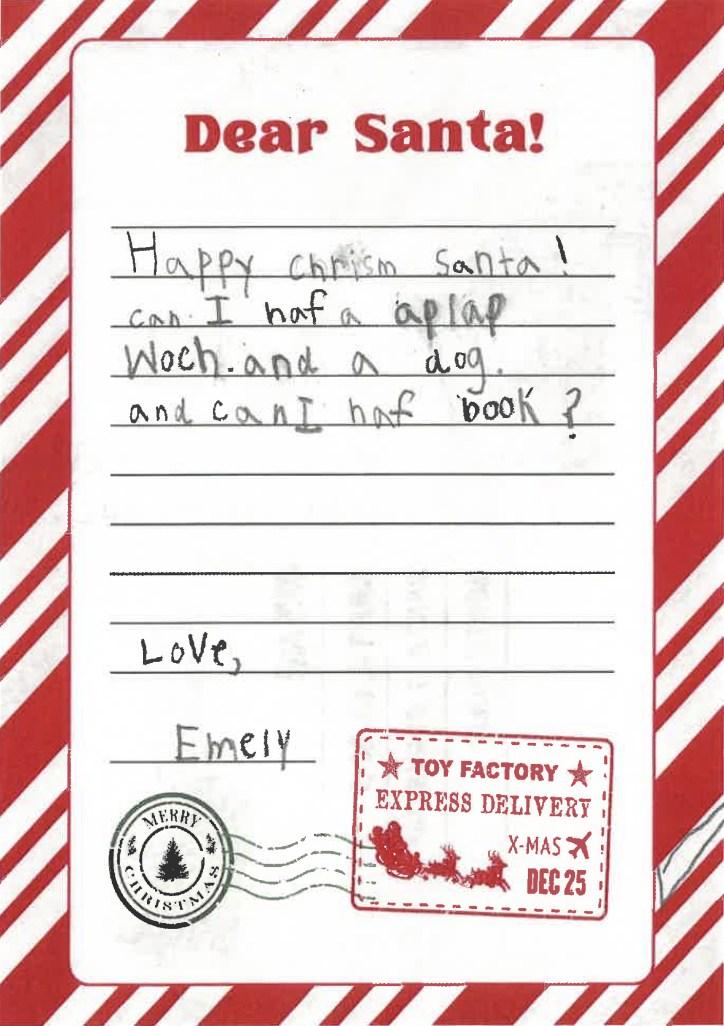 Dear Santa!
Happy chrism santa!
can I haf a aplap
Woch. and a dog.
and can I haf book?
Love,
Emely
TOY FACTORY
EXPRESS DELIVERY
X-MAS
DEC 25
MERRY
CHRISTMAS